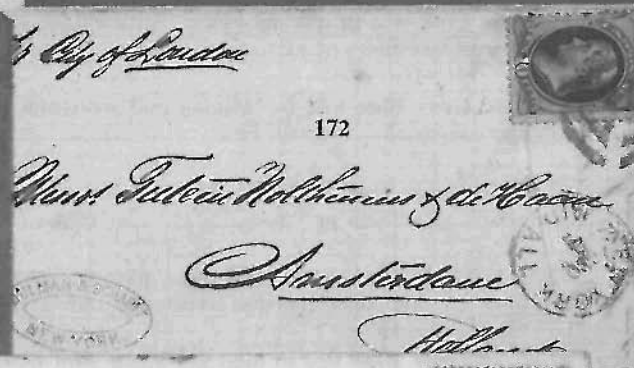 City of London
172
Messrs Tutein Nolthenius & de Haan
Amsterdam
Holland
NEW YORK